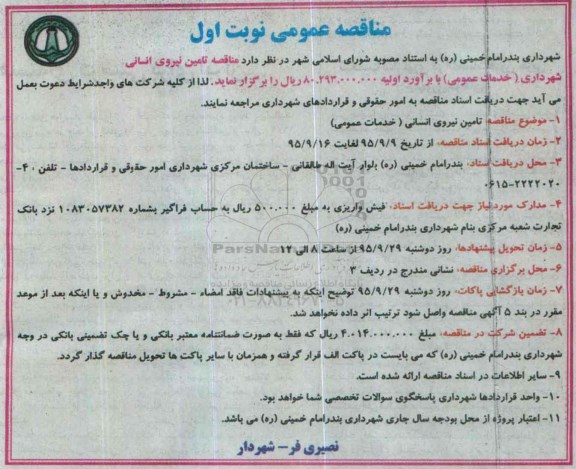 مناقصه عمومی نوبت اول
شهرداری بندرامام خمینی (ره) به استناد مصوبه شورای اسلامی شهر در نظر دارد مناقصه تامین نیروی انسانی
شهرداری ( خدمات عمومی) با برآورد اولیه ۸۰.۲۹۳.۰۰۰.۰۰۰ ریال را برگزار نماید. لذا از کلیه شرکت های واجدشرایط دعوت بعمل
می آید جهت دریافت اسناد مناقصه به امور حقوقی و قراردادهای شهرداری مراجعه نمایند.
۱- موضوع مناقصه: تامین نیروی انسانی ( خدمات عمومی)
۲- زمان دریافت اسناد مناقصه: از تاریخ ۹۵/۹/۹ لغایت ۹۵/۹/۱۶
۳- محل دریافت اسناد: بندرامام خمینی (ره) بلوار آیت اله طالقانی - ساختمان مرکزی شهرداری امور حقوقی و قراردادها - تلفن ۴۰-
۰۶۱۵-۲۲۲۲۰۲۰
۴- مدارک مورد نیاز جهت دریافت اسناد: فیش واریزی به مبلغ ۵۰۰.۰۰۰ ریال به حساب فراگیر بشماره ۱۰۸۳۰۵۷۳۸۲ نزد بانک
تجارت شعبه مرکزی بنام شهرداری بندرامام خمینی (ره)
۵- زمان تحویل پیشنهادها: روز دوشنبه ۹۵/۹/۲۹ از ساعت ۸ الی ۱۲
۶- محل برگزاری مناقصه: نشانی مندرج در ردیف ۳
۷- زمان بازگشایی پاکات: روز دوشنبه ۹۵/۹/۲۹ توضیح اینکه به پیشنهادات فاقد امضاء - مشروط - مخدوش و یا اینکه بعد از موعد
مقرر در بند ۵ آگهی مناقصه واصل شود ترتیب اثر داده نخواهد شد.
۸- تضمین شرکت در مناقصه: مبلغ ۴.۰۱۴.۰۰۰.۰۰۰ ریال که فقط به صورت ضمانتنامه معتبر بانکی و یا چک تضمینی بانکی در وجه
شهرداری بندرامام خمینی (ره) که می بایست در پاکت الف قرار گرفته و همزمان با سایر پاکت ها تحویل مناقصه گذار گردد.
۹- سایر اطلاعات در اسناد مناقصه ارائه شده است.
۱۰- واحد قراردادها شهرداری پاسخگوی سوالات تخصصی شما خواهد بود.
۱۱- اعتبار پروژه از محل بودجه سال جاری شهرداری بندرامام خمینی (ره) می باشد.
نصیری فر - شهردار